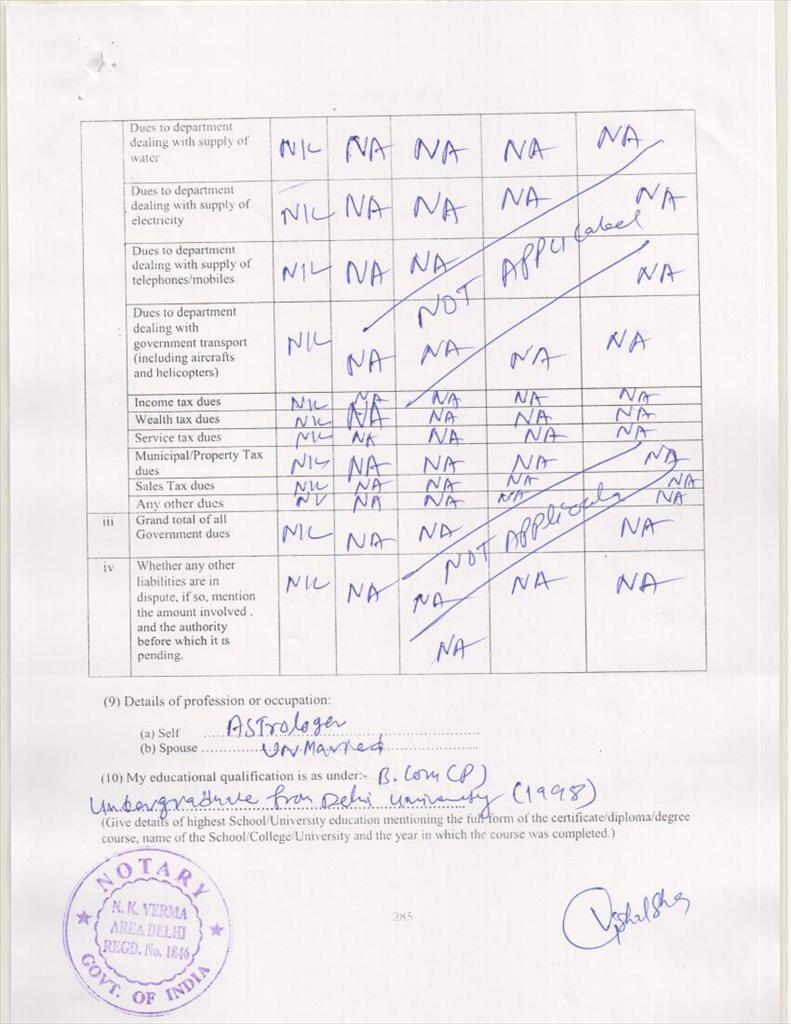 Dues to department
dealing with supply of
water
NIL NA NA NA NA
Dues to department
dealing with supply of
electricity
NIL NA NA NA NA
Dues to department
dealing with supply of
telephones/mobiles
NIL NA NA NA
NOT APPLICabel
Dues to department
dealing with
government transport
(including aircrafts
and helicopters)
NIL NA NA NA NA
Income tax dues NIL NA NA NA NA
Wealth tax dues NIL NA NA NA NA
Service tax dues NIL NA NA NA NA
Municipal/Property Tax
dues
NIL NA NA NA NA
Sales Tax dues NIL NA NA NA NA
Any other dues NA NA NA NA
iii Grand total of all
Government dues
NIL NA NA NA
NOT
iv Whether any other
liabilities are in
dispute, if so, mention
the amount involved .
and the authority
before which it is
pending.
NIL NA NA NA NA
NA
(9) Details of profession or occupation:
(a) Self ASTrologer
(b) Spouse UNMarried
(10) My educational qualification is as under:- B.Com(P)
Undergraduate from Delhi University (1998)
(Give details of highest School/University education mentioning the full form of the certificate/diploma/degree
course, name of the School/College/University and the year in which the course was completed.)
NOTARY
N. K. VERMA
AREA DELHI
REGD. No. 1846
GOVT. OF INDIA
285